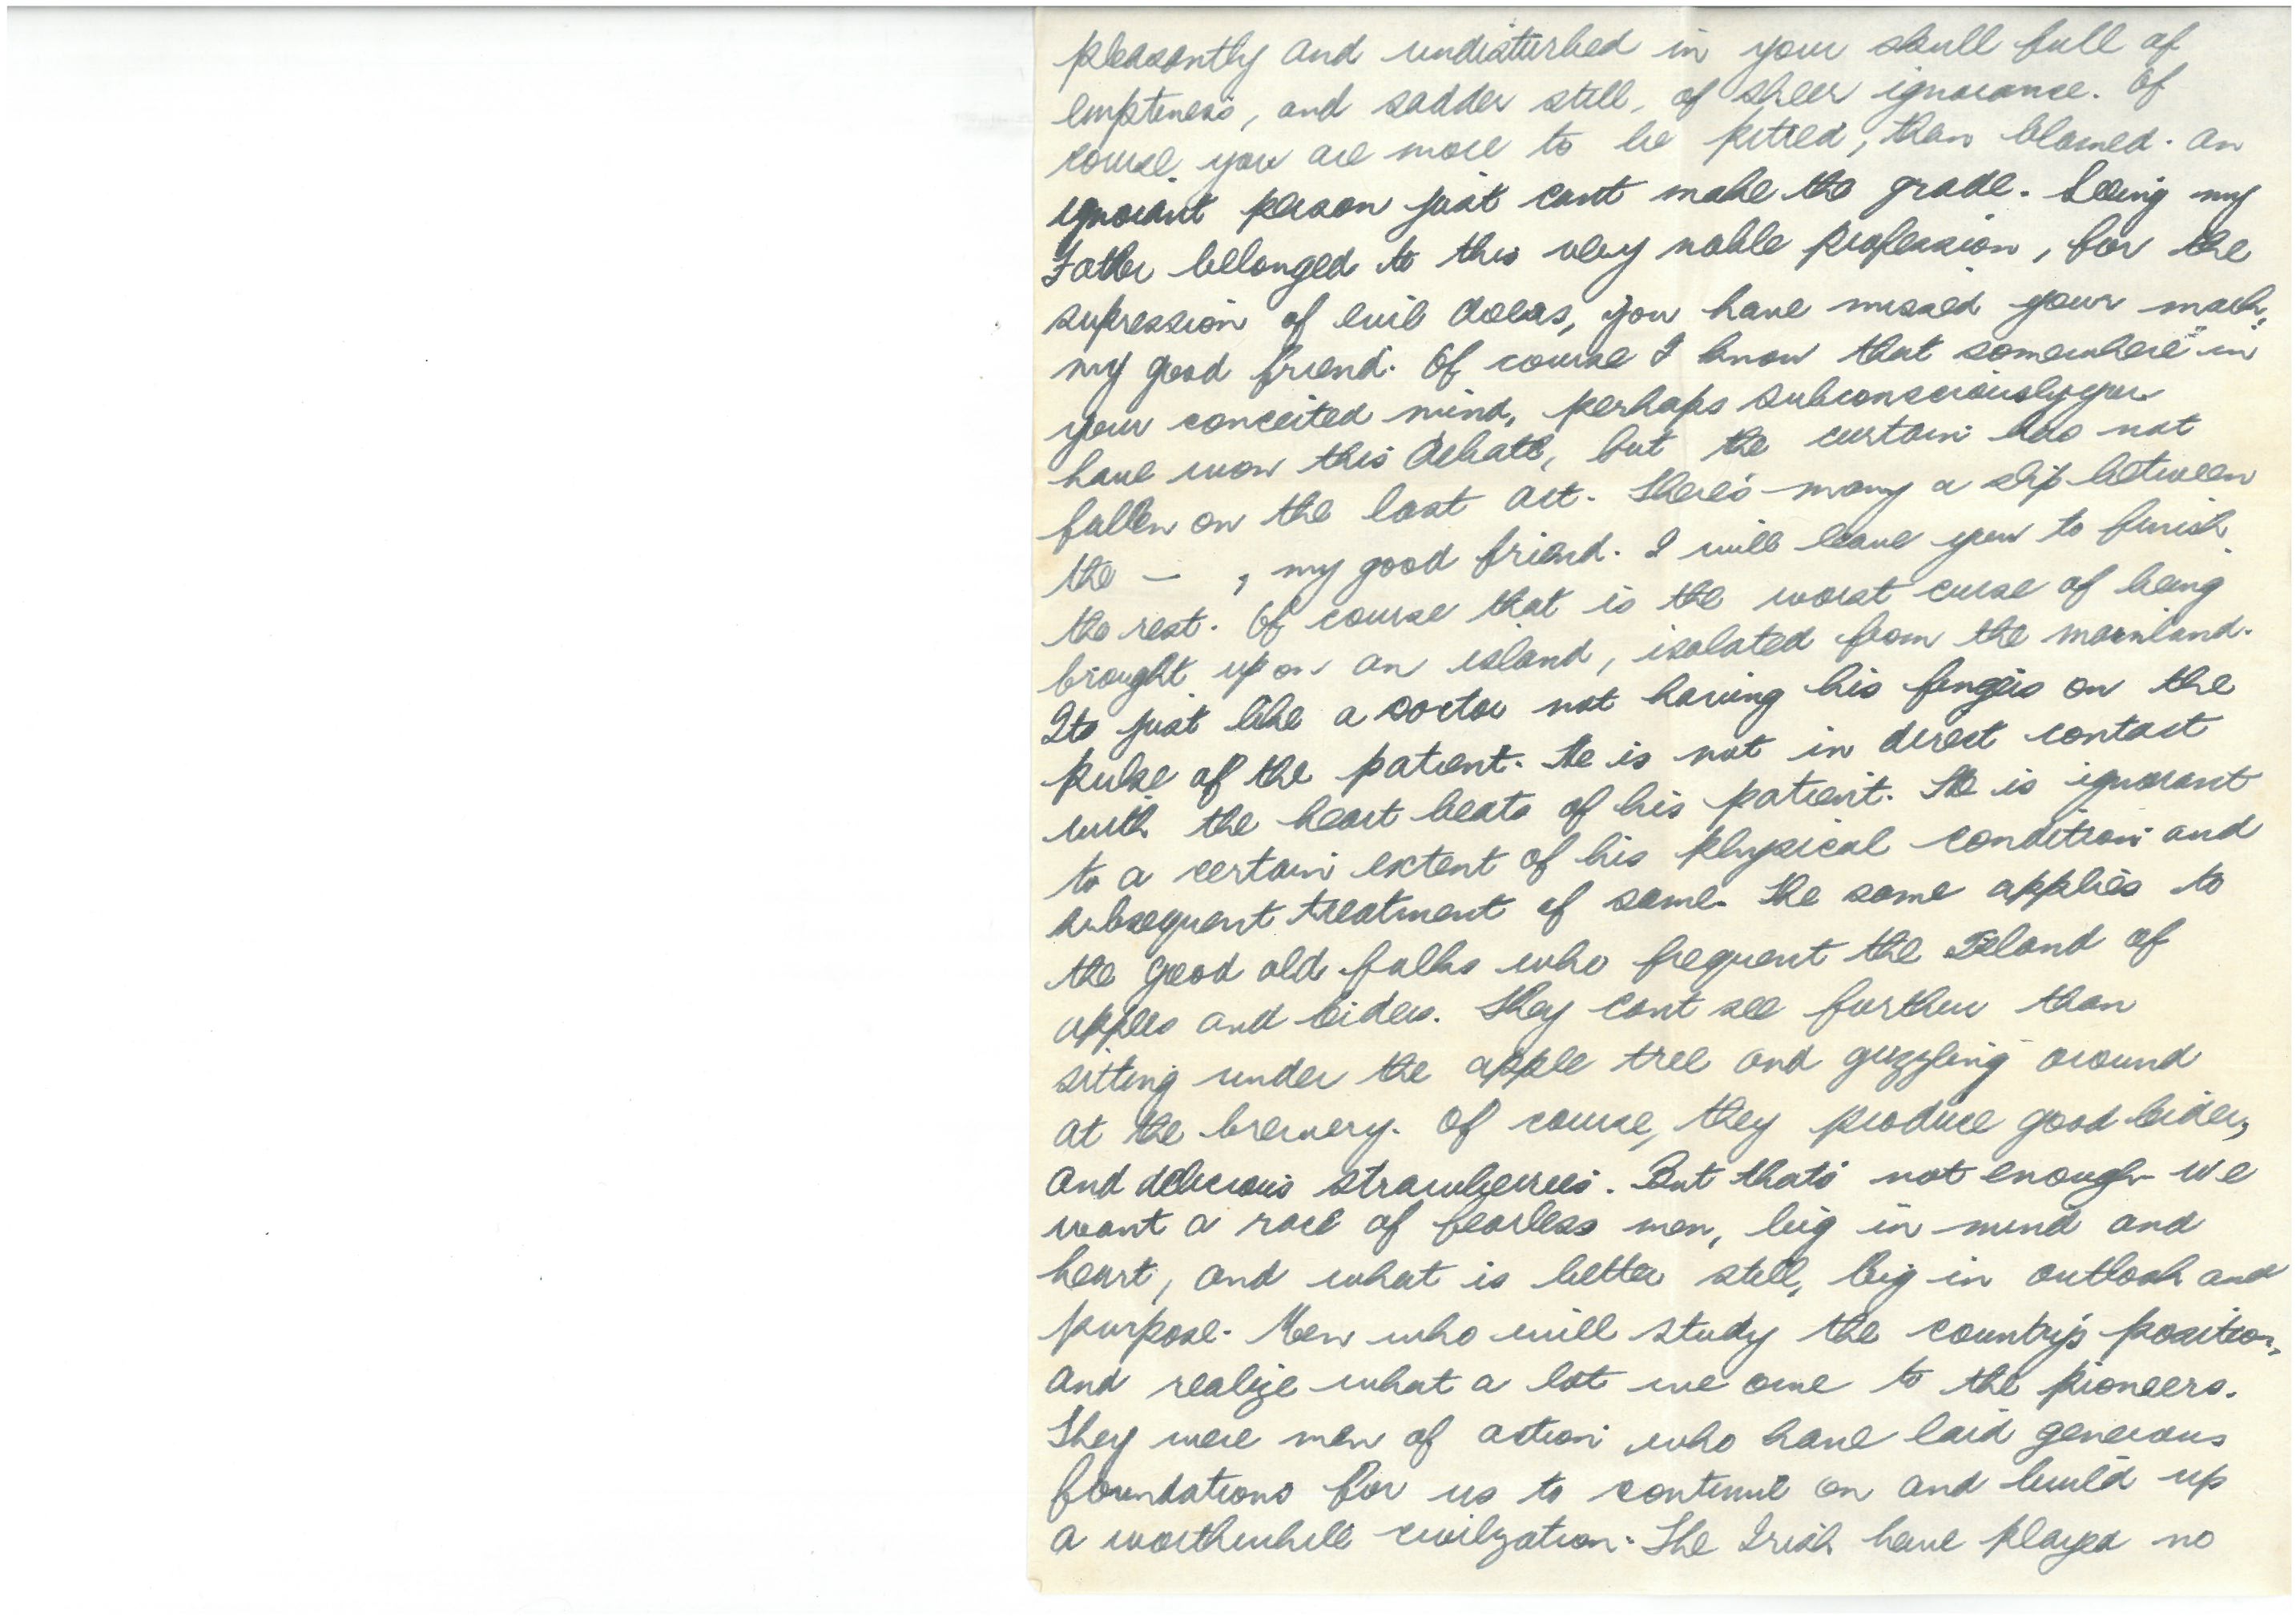 pleasantly and undisturbed in your skull full of
emptiness, and sadder still, of sheer ignorance. Of
course you are more to be pitied, than blamed. An
ignorant person just can't make the grade. Seeing my
Father bellonged to this very noble profession, for the
supression of evil doers, you have missed your mark,
my good friend. Of course I know that somewhere in
your conceited mind, perhaps subconsciously you
have won this debate, but the curtain has not
fallen on the last act. There's many a slip between
the — , my good friend. I will leave you to finish
the rest. Of course that is the worst curse of being
brought up on an island, isolated from the mainland.
Its just like a Doctor not having his fingers on the
pulse of the patient. He is not in direct contact
with the heart beats of his patient. He is ignorant
to a certain extent of his physical condition and
subsequent treatment of same. The same applies to
the good old folks who frequent the Island of
apples and cider. They cant see further than
sitting under the apple tree and guzzling around
at the brewery. Of course, they produce good cider,
and delicious strawberries. But thats not enough we
want a race of fearless men, big in mind and
heart, and what is better still, big in outlook and
purpose. Men who will study the country's position,
and realize what a lot we owe to the pioneers.
They were men of action who have laid generous
foundations for us to continue on and build up
a worthwhile civilzation. The Irish have played no